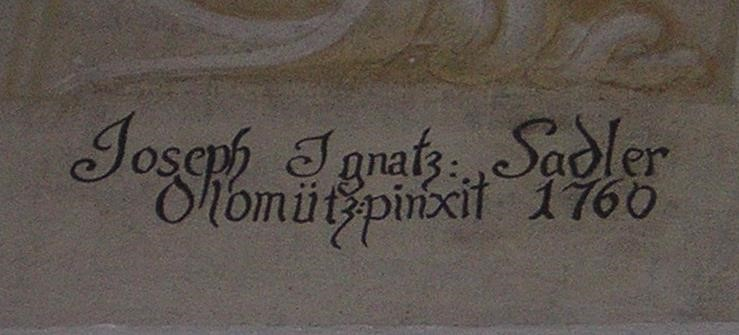 Joseph Ignatz: Sadler
Olomütz:pinxit 1760